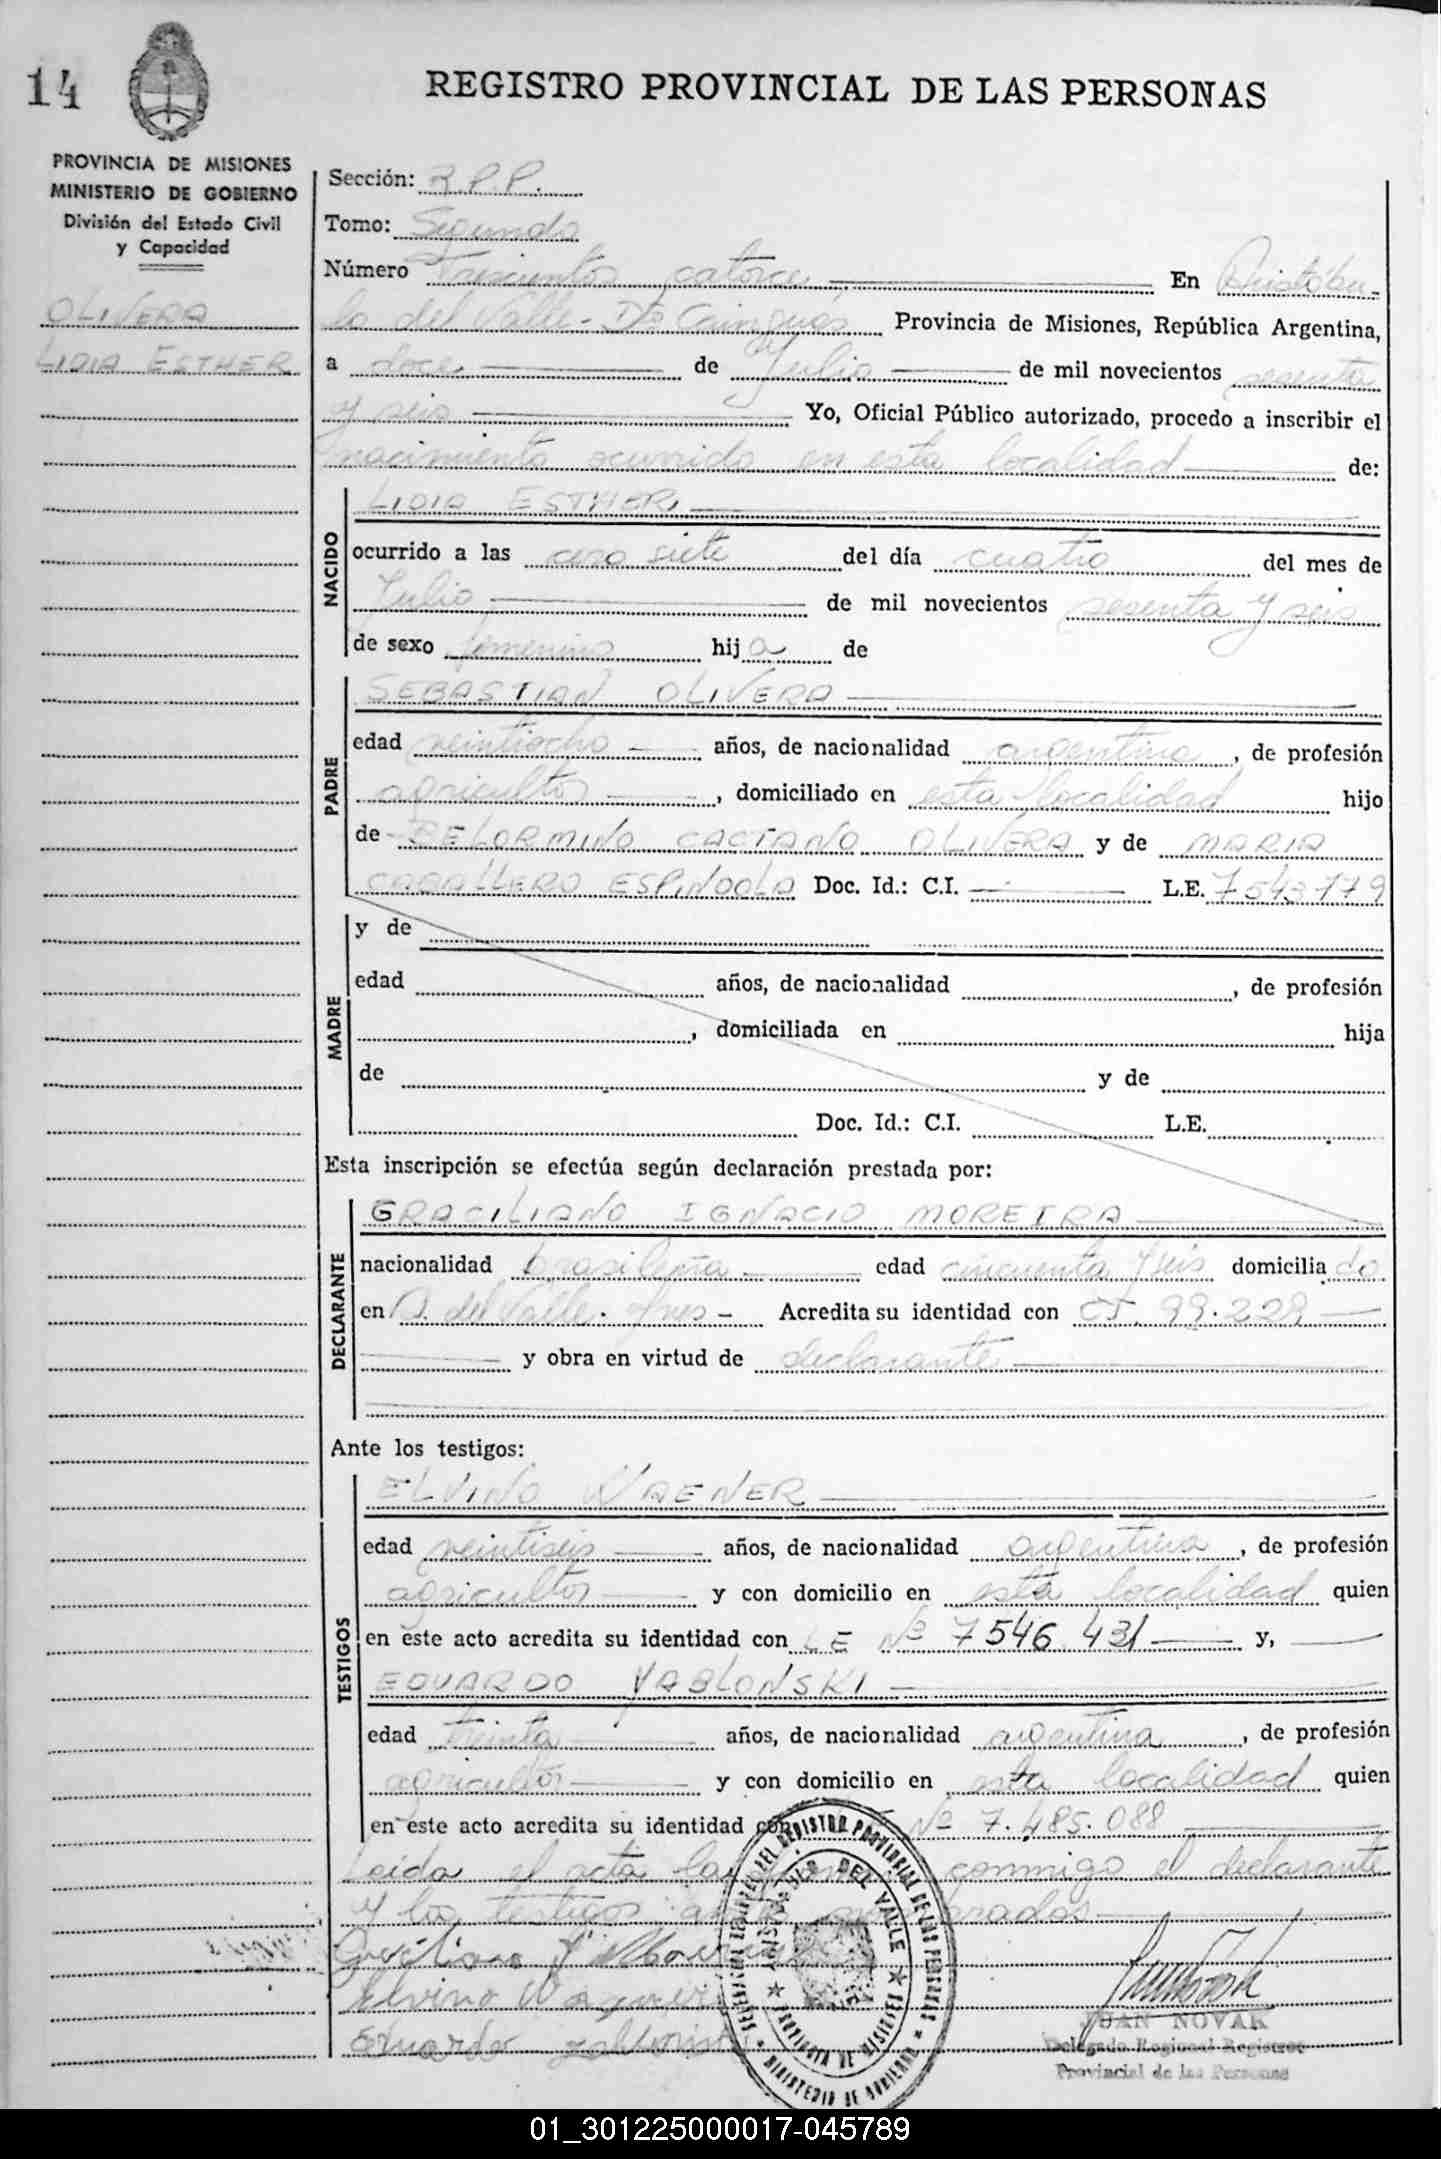 14
REGISTRO PROVINCIAL DE LAS PERSONAS
PROVINCIA DE MISIONES
MINISTERIO DE GOBIERNO
División del Estado Civil
y Capacidad
OLIVERA
LIDIA ESTHER
Sección: R.P.P.
Tomo: Segundo
Número Trescientos catorce En Aristóbu-
lo del Valle - Dto Cainguás Provincia de Misiones, República Argentina,
a doce de Julio de mil novecientos sesenta
y seis Yo, Oficial Público autorizado, procedo a inscribir el
nacimiento ocurrido en esta localidad de:
NACIDO
LIDIA ESTHER
ocurrido a las cero siete del día cuatro del mes de
Julio de mil novecientos sesenta y seis
de sexo femenino hija de
PADRE
SEBASTIAN OLIVERA
edad veintiocho años, de nacionalidad argentina, de profesión
agricultor, domiciliado en esta localidad hijo
de BELORMINO CAETANO OLIVERA y de MARIA
CABALLERO ESPINDOLA Doc. Id.: C.I. L.E. 7543779
MADRE
y de
edad años, de nacionalidad , de profesión
, domiciliada en hija
de y de
Doc. Id.: C.I. L.E.
Esta inscripción se efectúa según declaración prestada por:
DECLARANTE
GRACILIANO IGNACIO MOREIRA
nacionalidad brasileña edad cincuenta y seis domiciliado
en A. del Valle. Mnes - Acredita su identidad con CI. 99.229
y obra en virtud de declarante
Ante los testigos:
TESTIGOS
ELVINO WAGNER
edad veintiseis años, de nacionalidad argentina, de profesión
agricultor y con domicilio en esta localidad quien
en este acto acredita su identidad con LE Nº 7546.431 y,
EDUARDO YABLONSKI
edad treinta años, de nacionalidad argentina, de profesión
agricultor y con domicilio en esta localidad quien
en este acto acredita su identidad con Nº 7.485.088
Leida el acta la conmigo el declarante
y los testigos
Elvino Wagner
Eduardo
REGISTRO PROVINCIAL DE LAS PERSONAS
DEL VALLE
PROVINCIA DE MISIONES
MINISTERIO DE GOBIERNO
JUAN NOVAK
Delegado Regional Registro
Provincial de las Personas
01_301225000017-045789